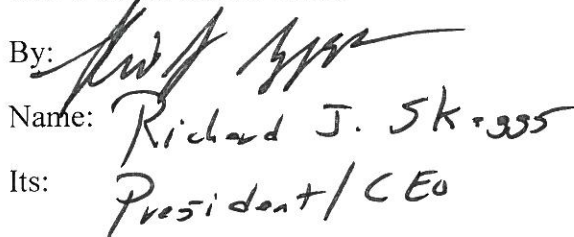 By:
Name: Richard J. Skaggs
Its: President/CEO